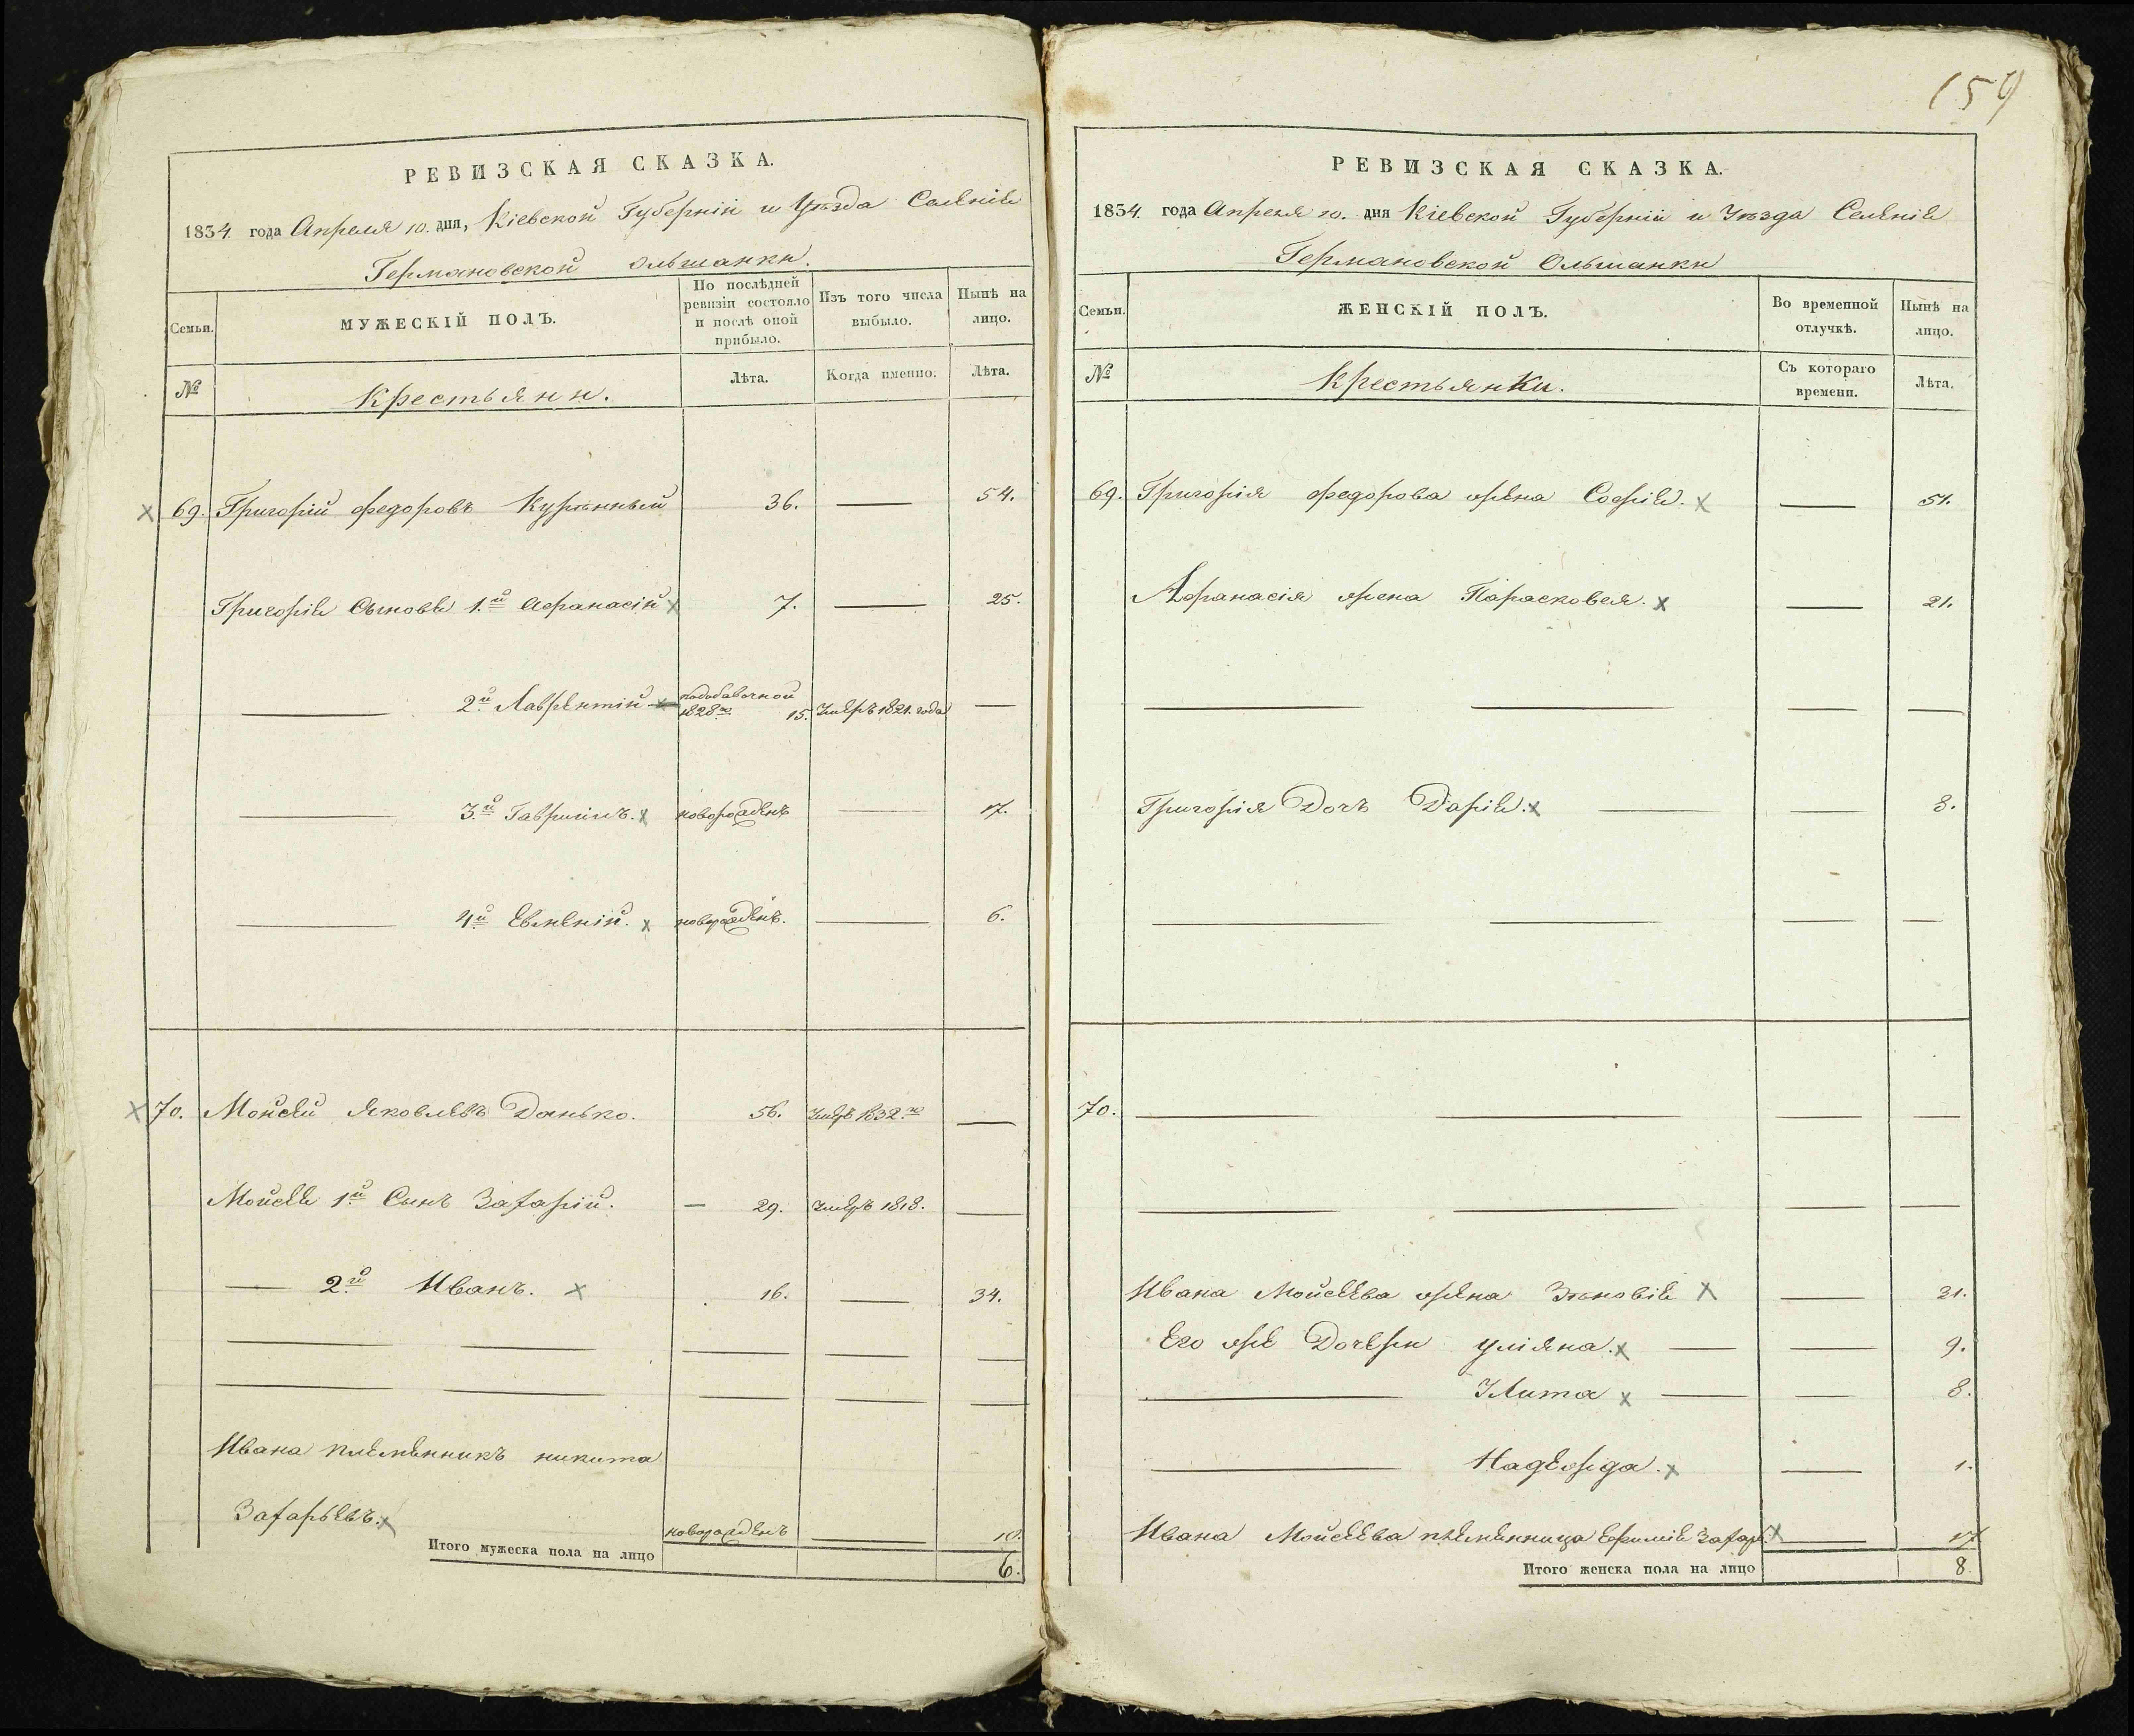 159
РЕВИЗСКАЯ СКАЗКА.
1834 года Апреля 10. дня, Кіевской Губерніи и Уѣзда Селенія
Германовской Ольшанки.
Семьи.
МУЖЕСКІЙ ПОЛЪ.
По послѣдней ревизіи состояло и послѣ оной прибыло.
Изъ того числа выбыло.
Нынѣ на лицо.
№
Крестьяни.
Лѣта.
Когда именно.
Лѣта.
69. Григорій Федоровъ Курѣнный 36. — 54.
Григорія Сыновья 1.й Афанасій 7. — 25.
— 2.й Лаврентій подобавочной 1828го 15. Умеръ 1821. года —
— 3.й Гавріилъ. новорожденъ — 17.
— 4й Евмѣній. новорожденъ. — 6.
70. Мойсей Яковлевъ Данько. 56. Умеръ 1832.го —
Мойсея 1й Сынъ Захарій. — 29. Умеръ 1818. —
— 2й Иванъ. 16. — 34.
Ивана племенникъ никита
Захарьевъ. новорожденъ — 18.
Итого мужеска пола на лицо 6.
РЕВИЗСКАЯ СКАЗКА.
1834. года Апреля 10. дня Кіевской Губерніи и Уѣзда Селенія
Германовской Ольшанки
Семьи.
ЖЕНСКІЙ ПОЛЪ.
Во временной отлучкѣ.
Нынѣ на лицо.
№
Крестьянки.
Съ котораго времени.
Лѣта.
69. Григорія Федорова жена Софія. — 51.
Афанасія жена Парасковея. — 21.
Григорія Дочь Дарія. — 8.
70.
Ивана Мойсеева жена Зѣновія — 21.
Его же Дочери Уліяна. — 9.
— Улита — 8.
— Надежда. — 1.
Ивана Мойсеева племенница Ефимія Захар. — 17
Итого женска пола на лицо 8.